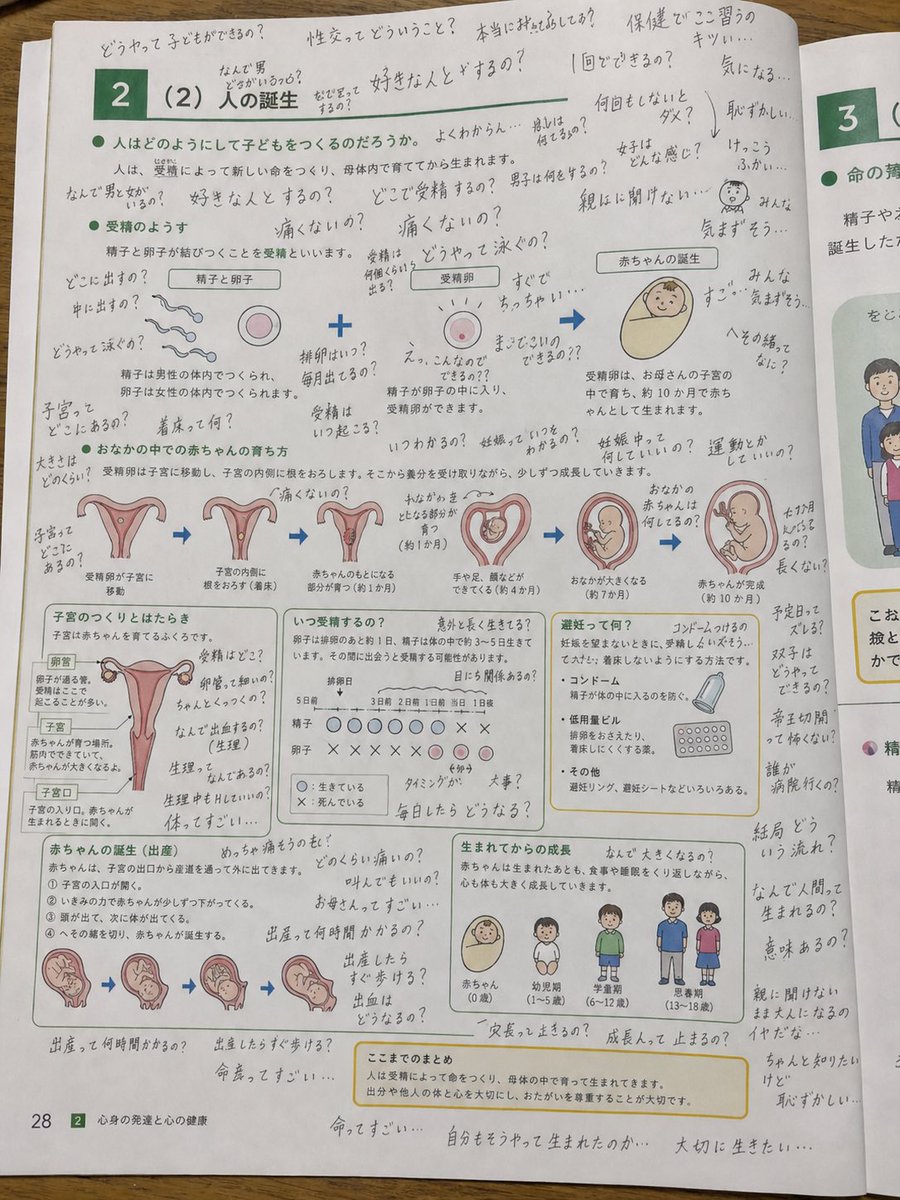 どうやって子どもができるの?
性交ってどういうこと?
本当に
保健でここ習うの
キツい…
2
(2)人の誕生
なんで男
好きな人とするの?
1回でできるの?
気になる…
何回もしないと
ダメ?
恥ずかしい…
けっこう
ふかい…
人はどのようにして子どもをつくるのだろうか。
よくわからん…
女子は
どんな感じ?
人は、受精によって新しい命をつくり、母体内で育ててから生まれます。
じゅせい
なんで男と女が
いるの?
好きな人とするの?
どこで受精するの?
男子は何をするの?
親に聞けない…
みんな
気まずそう…
受精のようす
痛くないの?
痛くないの?
精子と卵子が結びつくことを受精といいます。
受精は
何個くらい
出る?
どうやって泳ぐの?
どこに出すの?
中に出すの?
どうやって泳ぐの?
精子と卵子
+
受精卵
すぐで
ちっちゃい…
赤ちゃんの誕生
すご…
みんな
気まずそう…
へその緒って
なに?
排卵はいつ?
毎月出てるの?
えっ、こんなので
できるの??
できるの??
精子は男性の体内でつくられ、
卵子は女性の体内でつくられます。
精子が卵子の中に入り、
受精卵ができます。
受精卵は、お母さんの子宮の
中で育ち、約10か月で赤ち
ゃんとして生まれます。
子宮って
どこにあるの?
着床って何?
受精は
いつ起こる?
いつわかるの?
妊娠って いつ
わかるの?
妊娠中って
何していいの?
運動とか
していいの?
おなかの中での赤ちゃんの育ち方
大きさは
どのくらい?
受精卵は子宮に移動し、子宮の内側に根をおろします。そこから養分を受け取りながら、少しずつ成長していきます。
子宮って
どこに
あるの?
痛くないの?
育つ
(約1か月)
おなかの
赤ちゃんは
何してるの?
長くない?
受精卵が子宮に
移動
子宮の内側に
根をおろす(着床)
赤ちゃんのもとになる
部分が育つ(約1か月)
手や足、顔などが
できてくる(約4か月)
おなかが大きくなる
(約7か月)
赤ちゃんが完成
(約10か月)
子宮のつくりとはたらき
子宮は赤ちゃんを育てるふくろです。
卵管
卵子が通る管。
受精はここで
起こることが多い。
子宮
赤ちゃんが育つ場所。
筋肉でできていて、
赤ちゃんが大きくなるよ。
子宮口
子宮の入り口。赤ちゃんが
生まれるときに開く。
受精はどこ?
卵管って細いの?
ちゃんとくっつくの?
なんで出血するの?
(生理)
生理って
なんであるの?
生理中もHしていいの?
体ってすごい…
いつ受精するの?
意外と長く生きてる?
卵子は排卵のあと約1日、精子は体の中で約3〜5日生きて
います。その間に出会うと受精する可能性があります。
排卵日
5日前
3日前
2日前
1日前
当日
1日後
精子
××
卵子
×××××
×
:生きている
×:死んでいる
タイミングが
大事?
毎日したら どうなる?
避妊って何?
コンドームつけるの
妊娠を望まないときに、受精し
着床しないようにする方法です。
・コンドーム
精子が体の中に入るのを防ぐ。
・低用量ピル
排卵をおさえたり、
着床しにくくする薬。
・その他
避妊リング、避妊シートなどいろいろある。
予定日って
ズレる?
双子は
どうやって
できるの?
帝王切開
って怖くない?
誰が
病院行くの?
赤ちゃんの誕生(出産)
めっちゃ痛そう
赤ちゃんは、子宮の出口から産道を通って外に出てきます。
① 子宮の入口が開く。
② いきみの力で赤ちゃんが少しずつ下がってくる。
③ 頭が出て、次に体が出てくる。
④ へその緒を切り、赤ちゃんが誕生する。
どのくらい痛いの?
叫んでもいいの?
お母さんってすごい…
出産って何時間かかるの?
出産したら
すぐ歩ける?
出血は
どうなるの?
生まれてからの成長
なんで 大きくなるの?
赤ちゃんは生まれたあとも、食事や睡眠をくり返しながら、
心も体も大きく成長していきます。
赤ちゃん
(0歳)
幼児期
(1〜5歳)
学童期
(6〜12歳)
思春期
(13〜18歳)
結局 どう
いう流れ?
なんで人間って
生まれるの?
意味あるの?
親に聞けない
まま大人になるの
イヤだな…
ちゃんと知りたい
けど
恥ずかしい…
止まるの?
出産って何時間かかるの?
出産したらすぐ歩ける?
ってすごい…
ここまでのまとめ
人は受精によって命をつくり、母体の中で育って生まれてきます。
自分や他人の体と心を大切にし、おたがいを尊重することが大切です。
28
2
心身の発達と心の健康
命ってすごい…
自分もそうやって生まれたのか…
大切に生きたい…
3
命の
精子や
誕生した
をとじ
こお
かで
精